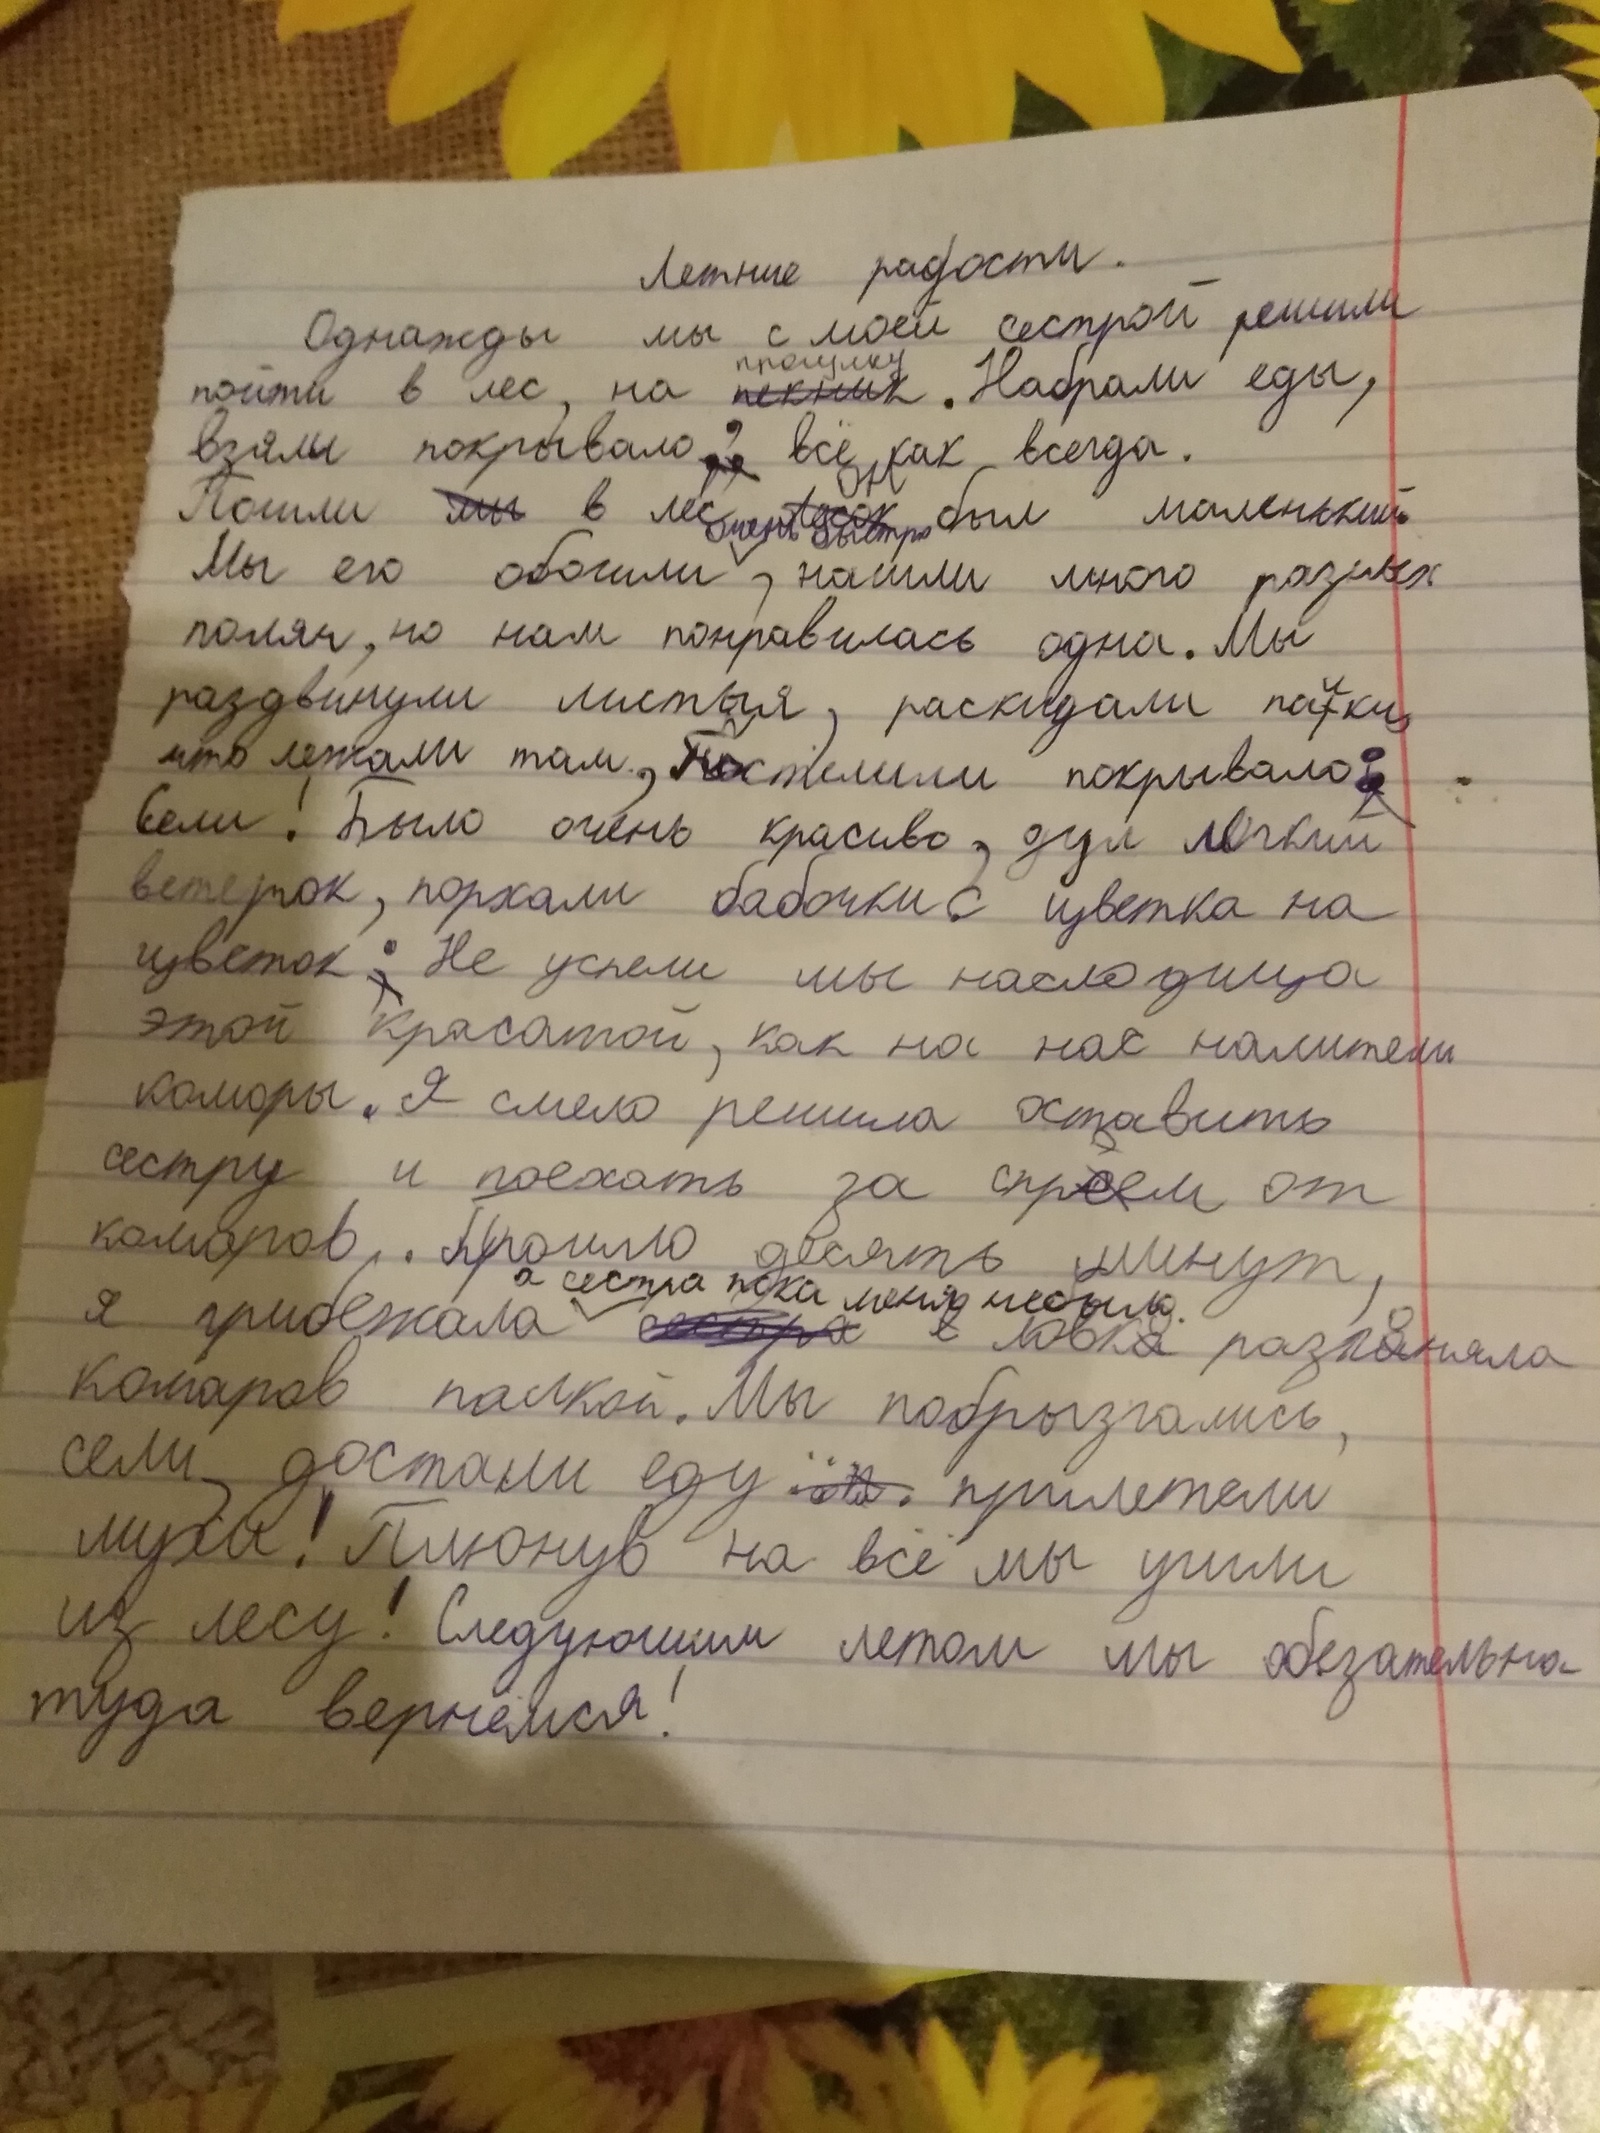 Летние радости.
Однажды мы с моей сестрой решили
прогулку
пойти в лес, на пекник. Набрали еды,
взяли покрывало, всё как всегда.
он
Пошли мы в лес, был маленький.
очень быстро
Мы его обошли, нашли много разных
полян, но нам понравилась одна. Мы
раздвинули листья, раскидали палки,
что лежали там, постелили покрывало
Сели! Было очень красиво, дул лёгкий
ветерок, порхали бабочки с цветка на
цветок. Не успели мы наслодица
этой красатой, как на нас налители
коморы. Я смело решила оставить
сестру и поехать за спреем от
комаров. Прошло десять минут,
а сестра пока меня небыло.
я прибежала сестра ловко разганяла
комаров палкой. Мы побрызгались,
сели, достали еду прилетели
муха! Плюнув на всё мы ушли
из лесу! Следующим летом мы обезательно
туда вернёмся!